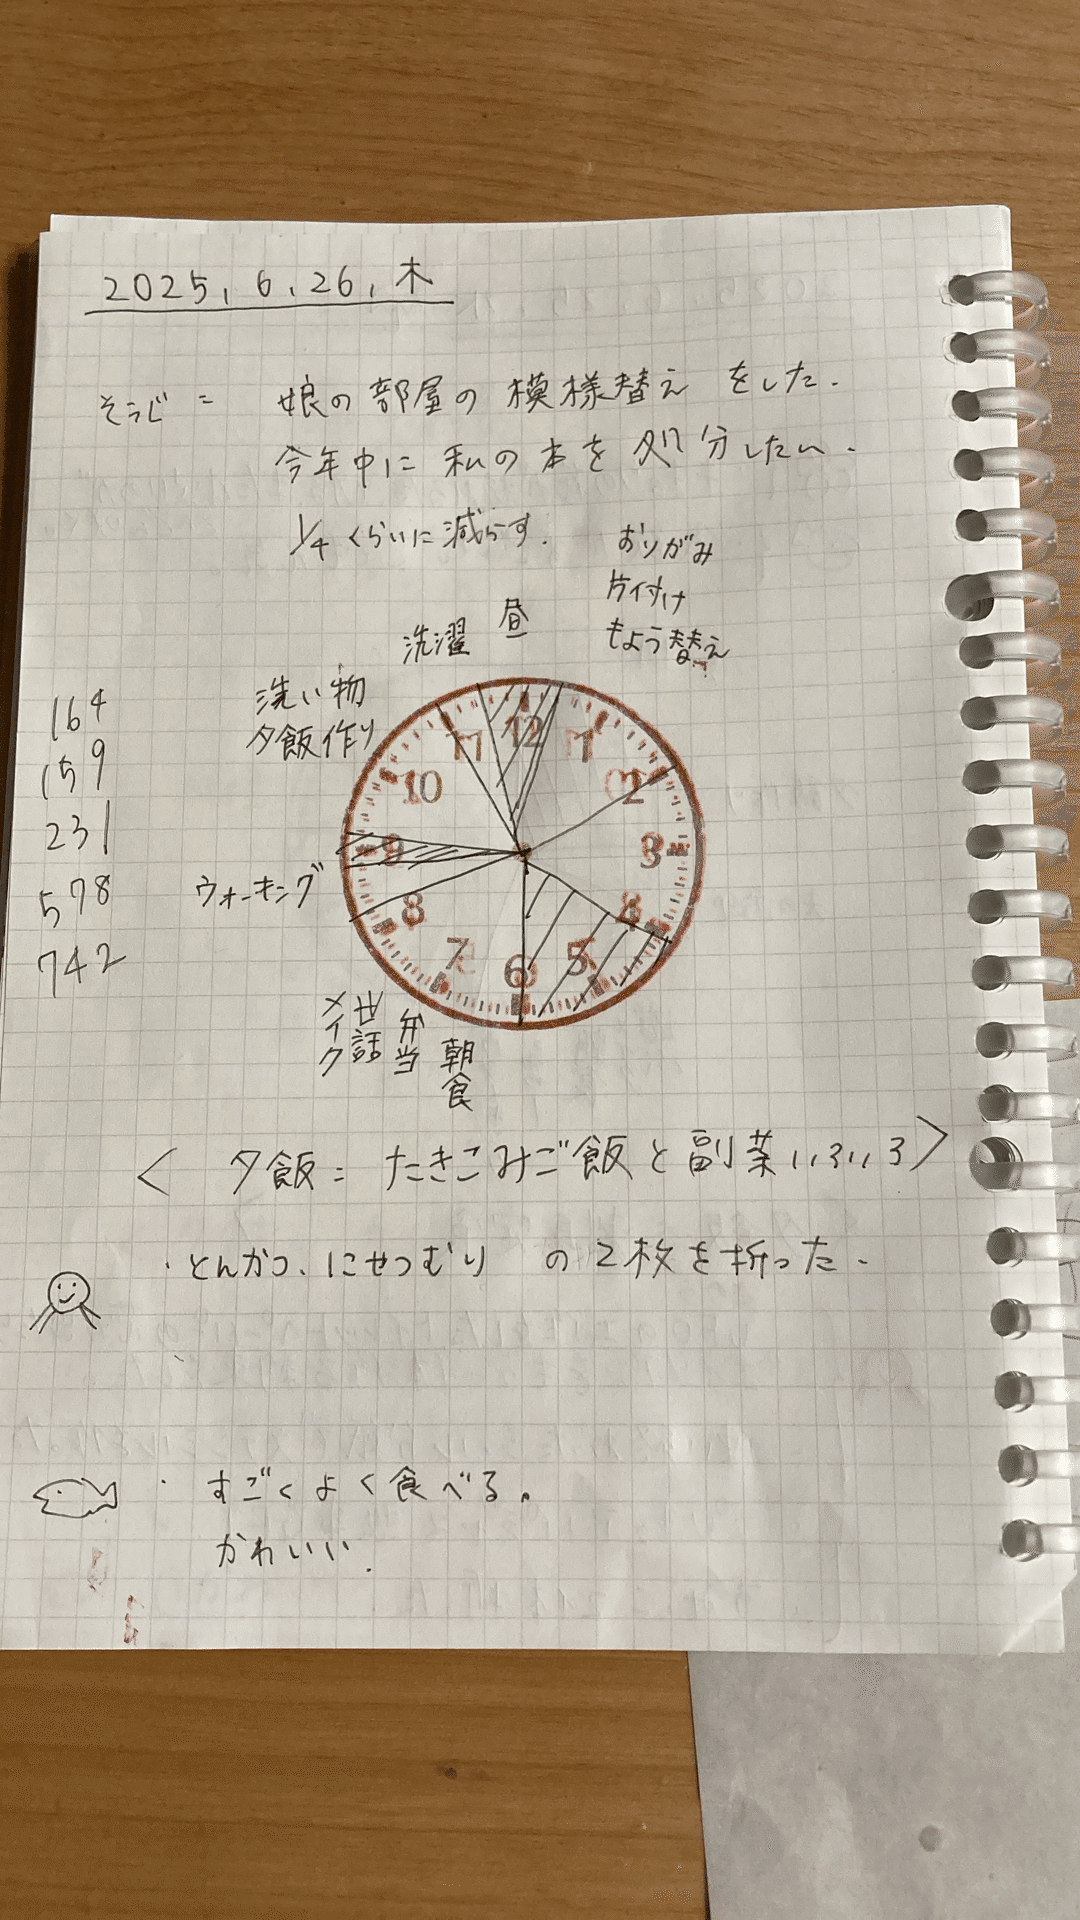 2025, 6, 26, 木
そうじ = 娘の部屋の模様替え をした.
今年中に 私の 本を 処分したい.
1/4 くらいに 減らす.
おりがみ
片付け
もよう替え
昼
洗濯
洗い物
夕飯作り
ウォーキング
メイク
世話
弁当
朝食
12
1
2
3
4
5
6
7
8
9
10
11
164
159
231
578
742
< 夕飯 = たきこみご飯と副菜いろいろ >
・とんかつ、にせつむり の 2枚を折った.
・すごく よく 食べる。
かわいい.